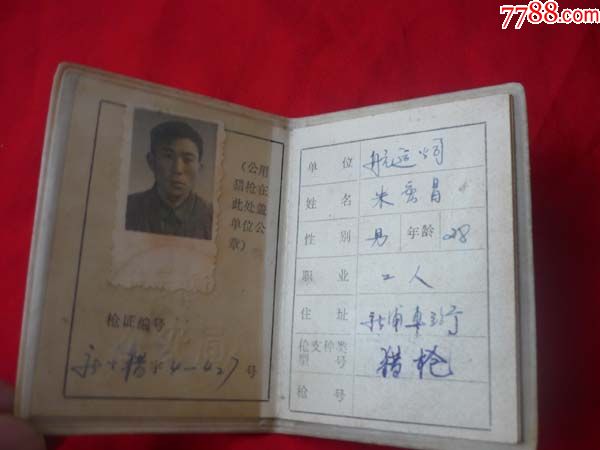 7788.com
(公用
猎枪在
此处盖
单位公
章)
枪证编号
猎字4-427号
单位 航运公司
姓名 朱
昌
性别 男 年龄 28
职业 工人
住址 新浦
枪支种类
型号 猎枪
枪号